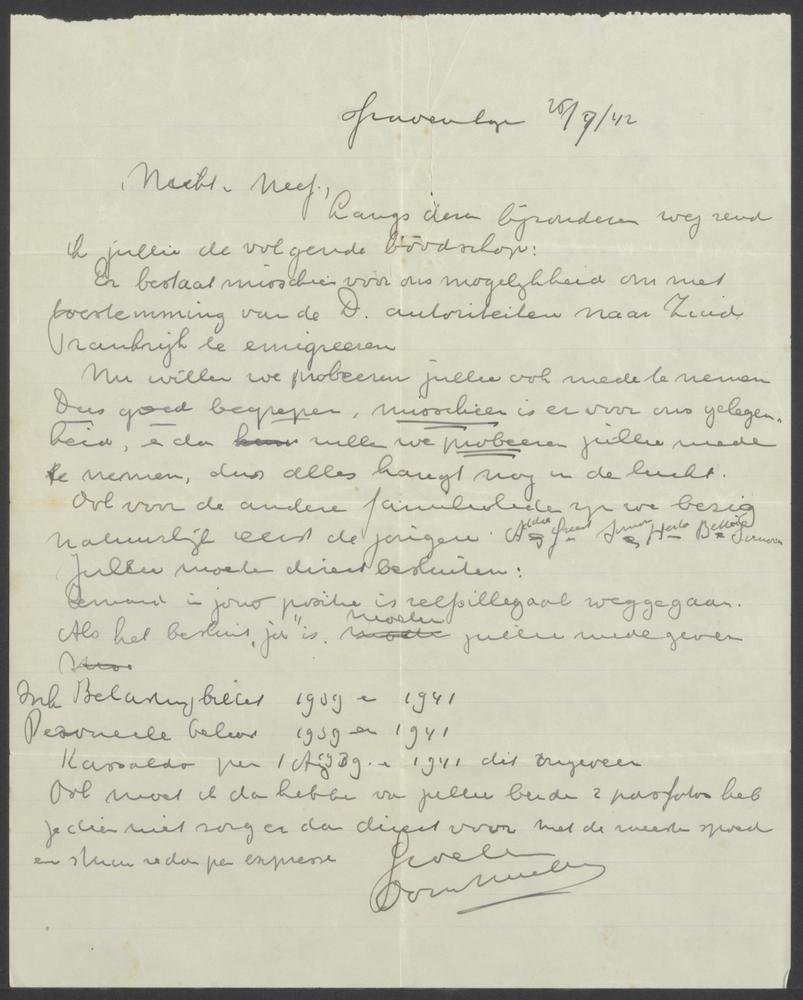 Gravenhage 25/9/42
Nicht & Neef,
Langs dezen bijzonderen weg zend
ik jullie de volgende boodschap:
Er bestaat misschien voor ons mogelijkheid om met
toestemming van de D. autoriteiten naar Zuid
Frankrijk te emigreeren
Nu willen we probeeren jullie ook mede te nemen
Dus goed begrepen, misschien is er voor ons gelegen-
heid, en dan willen we probeeren jullie mede
te nemen, dus alles hangt nog in de lucht.
Ook voor de andere familieleden zijn we bezig
natuurlijk eerst de jongen.
Jullie moeten direct besluiten:
Iemand in jouw positie is zelfs illegaal weggegaan.
Als het besluit "ja" is. moeten jullie medegeven
Ink Belastingbiljet 1939 en 1941
Personeele belas 1939 en 1941
Kassaldo per 1 Aug 39 en 1941 dit ongeveer
Ook moet ik dan hebben van jullie beide 2 pasfotos heb
je die niet zorg er dan direct voor met de meeste spoed
en stuur ze dan per expresse
Groeten
Oom